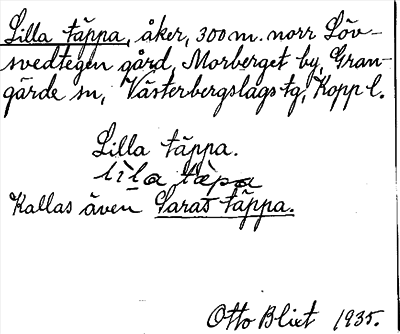 Lilla täppa, åker, 300 m. norr Löv-
svedtegen gård, Morberget by, Gran-
gärde sn, Västerbergslags tg, Kopp l.
Lilla täppa.
Kallas även Saras täppa.
Otto Blixt 1935.